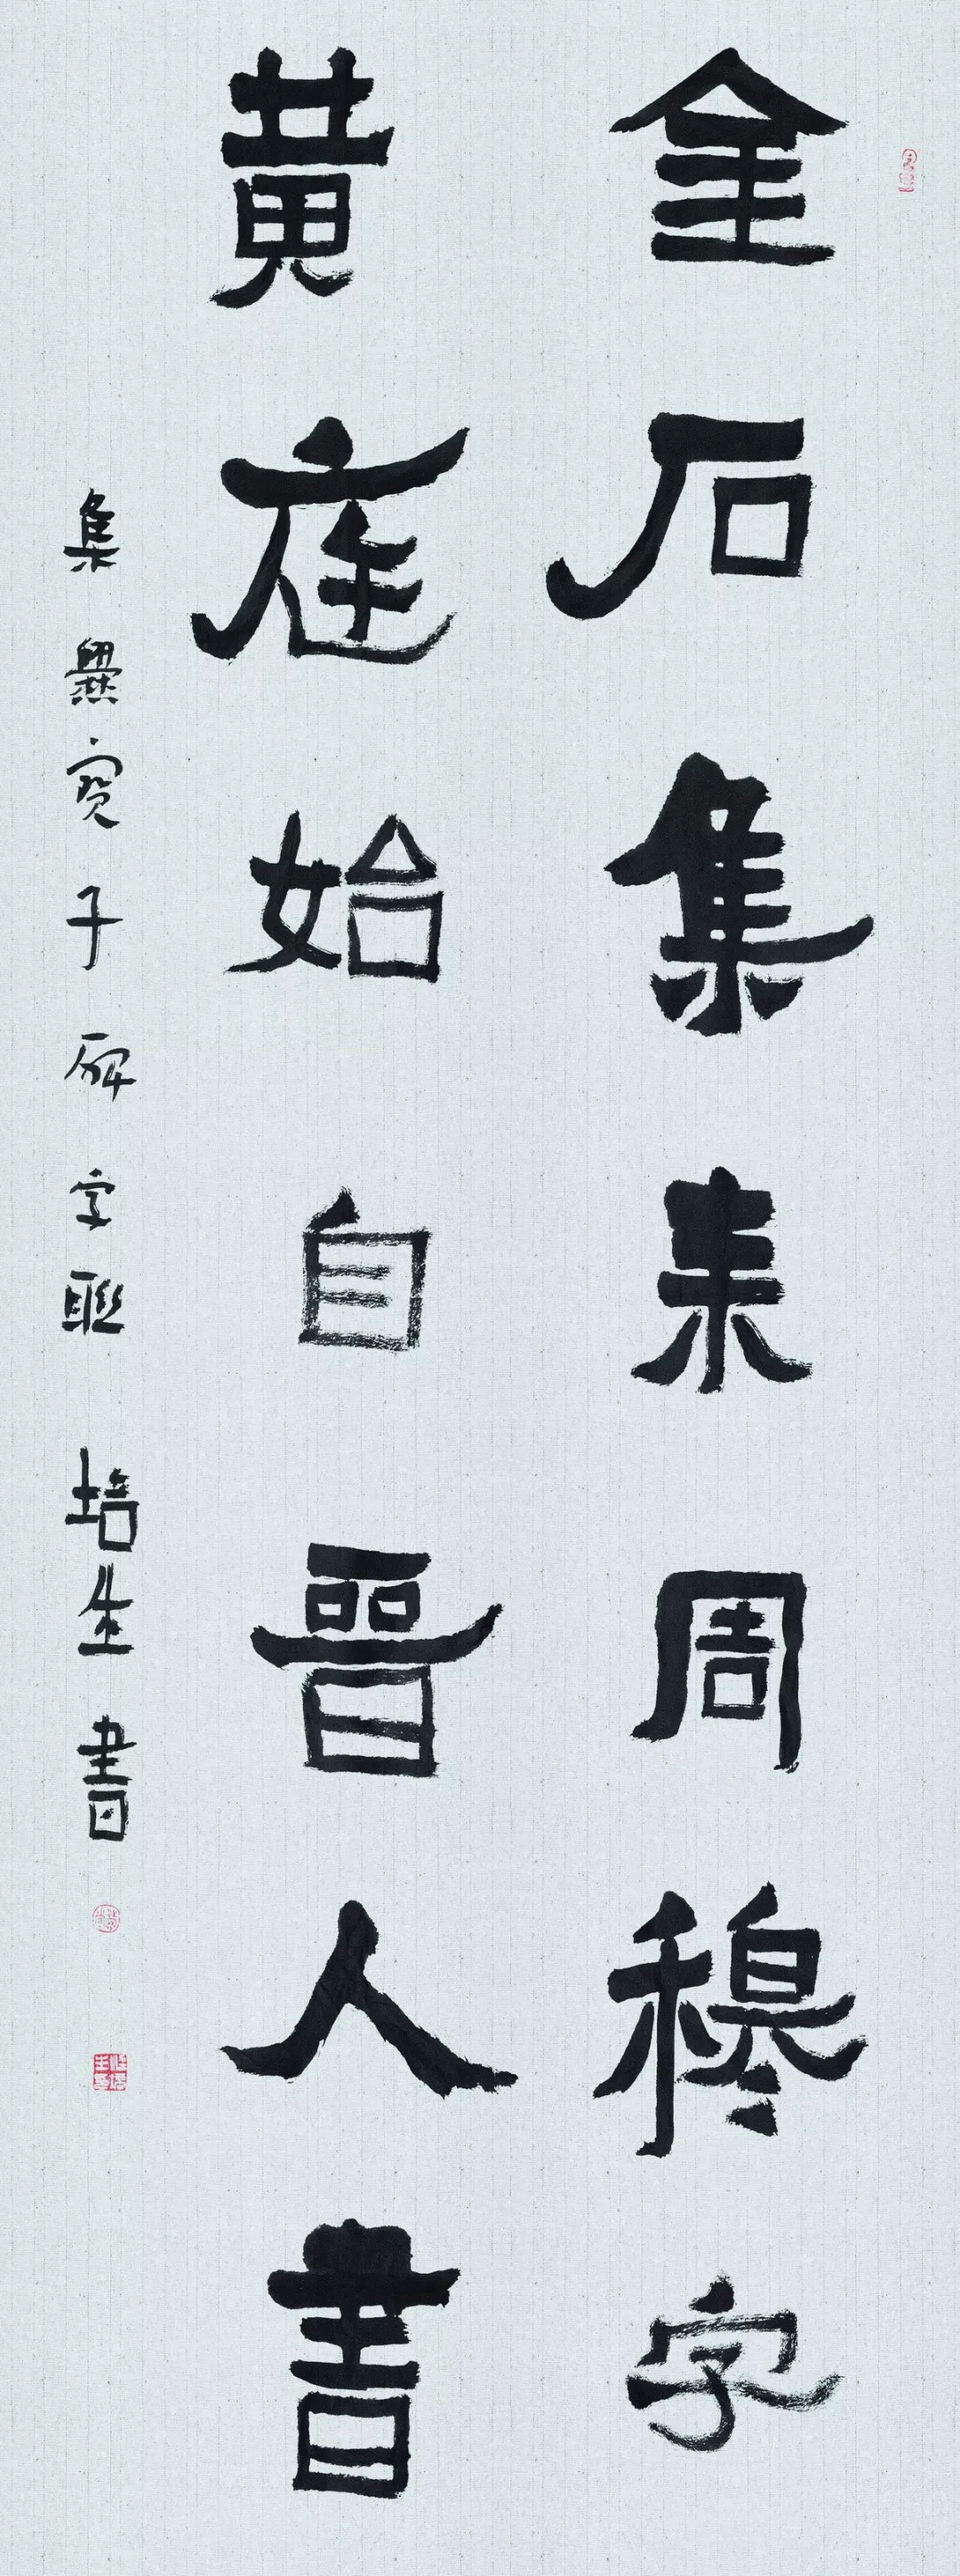 金石集来周穆字
黄庭始自晋人書
集爨寳子碑字聯 培生書